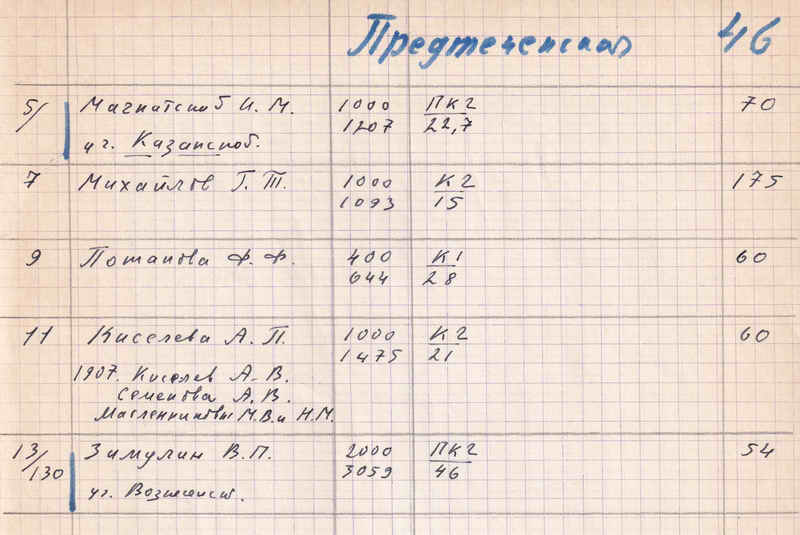 Предтеченская 46
5/ Магнатской И. М. 1000 ПК2 70
1207 22,7
уг. Казанской.
7 Михайлов Г. Т. 1000 К2 175
1093 15
9 Потапова Ф. Ф. 400 К1 60
644 28
11 Киселева А. П. 1000 К2 60
1475 21
1907. Киселев А. В.
Семенова А. В.
Масленниковы М.В. и Н.М.
13/130 Зимулин В.П. 2000 ПК2 54
3059 46
уг. Вознесенск.